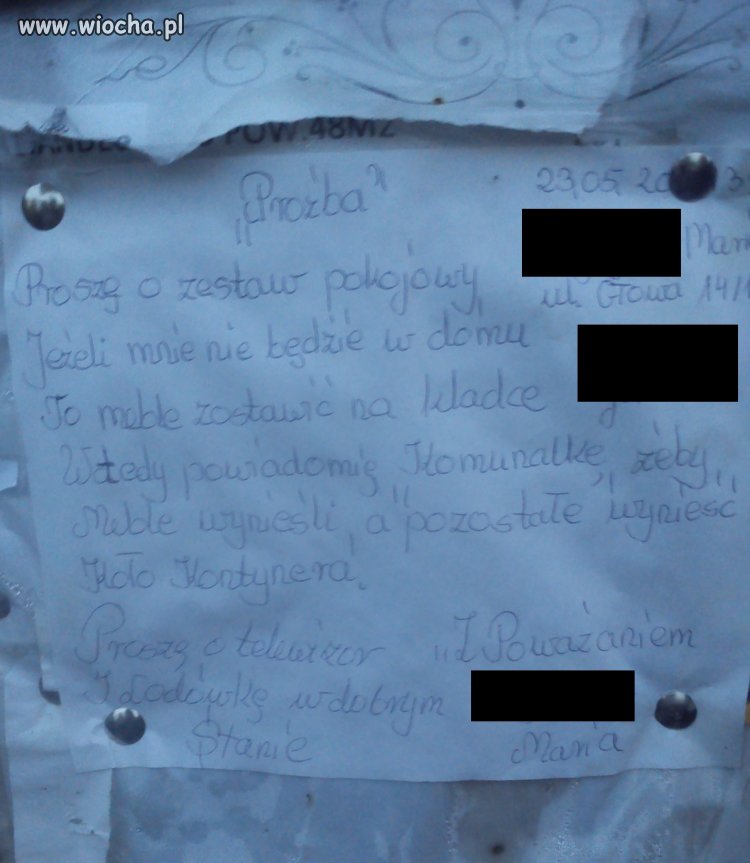 www.wiocha.pl
POW.48M2
23,05,20 3
„Proźba”
Mari
Proszę o zestaw pokojowy,
ul. Głowa 14/1
Jeżeli mnie nie będzie w domu
To meble zostawić na kladce
Wtedy powiadomię Komunalkę, żeby,
Meble wynieśli, a pozostałe wynieść
Koło Kontynera.
Proszę o telewizor „Z Poważaniem
I Lodówkę w dobrym
Stanie Maria